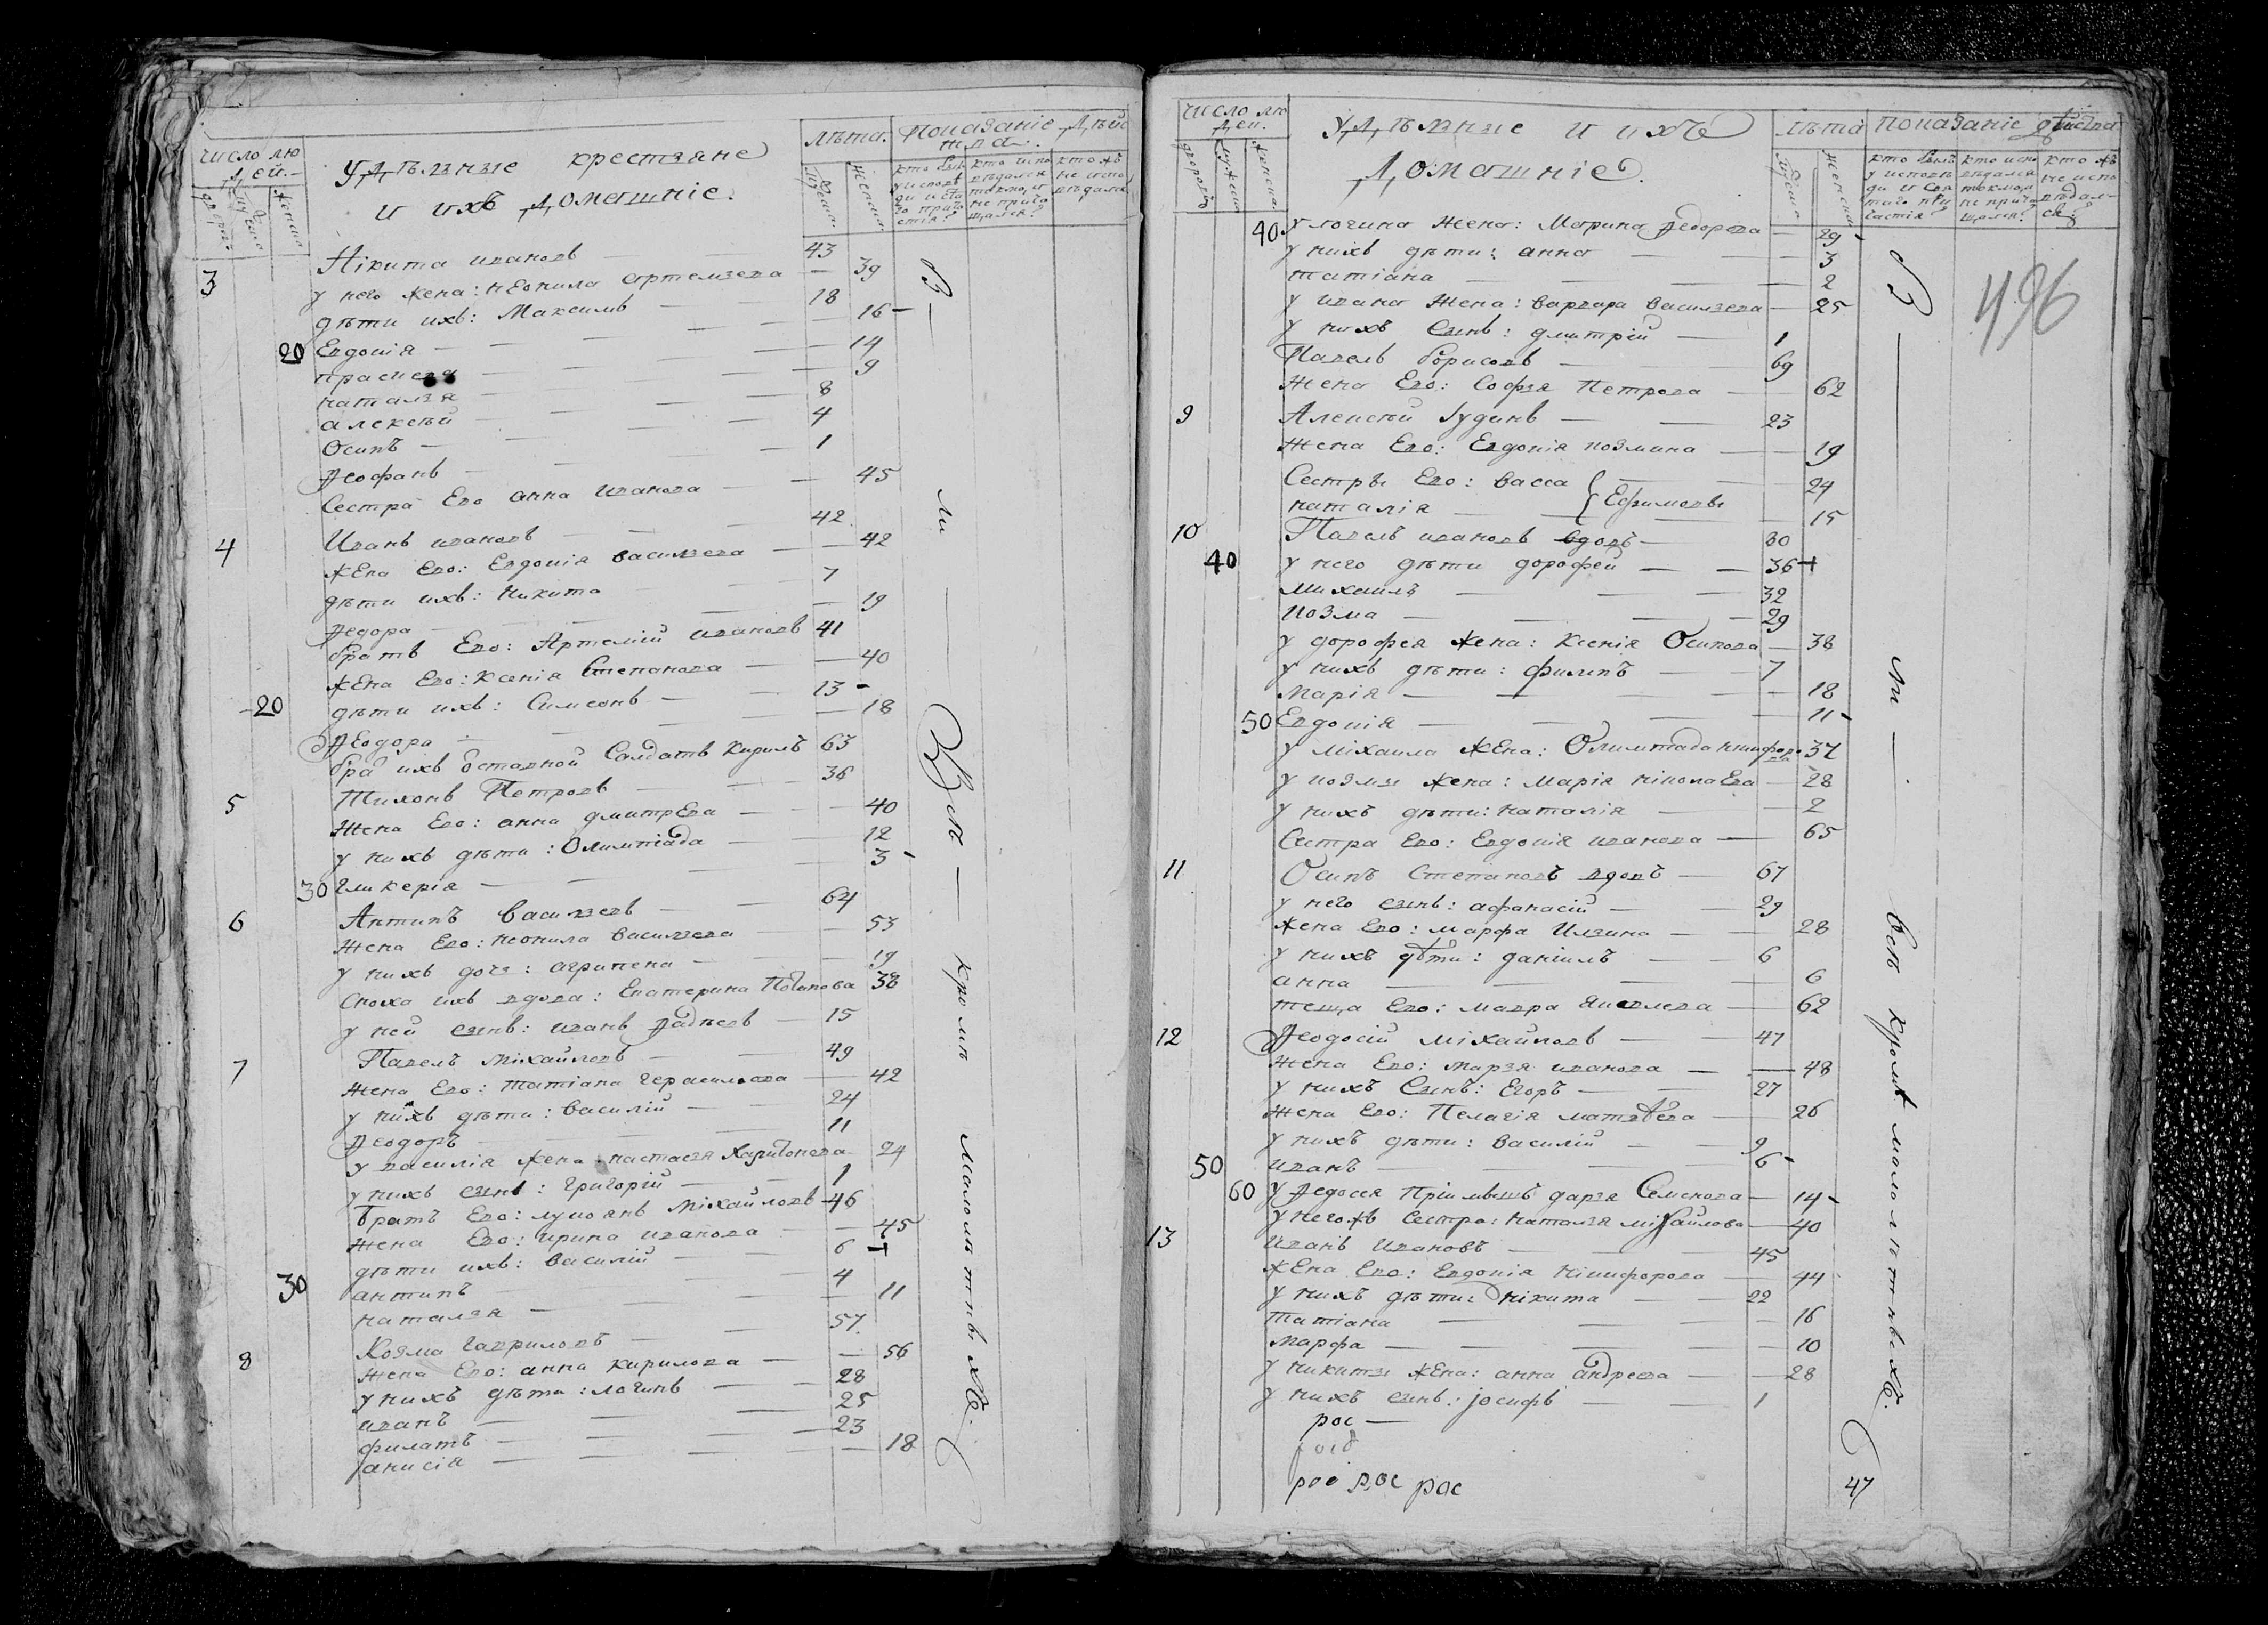 число лю
дей.
Удѣльные крестьяне
и ихъ домашніе.
лѣта.
показаніе дѣйс
тва
дворовъ
мужеска
женска
мужеска
женска
кто былъ
у исповѣ
ди и свя
кто испо
вѣдался
токмо, и
не прича
щался?
кто жъ
не испо
вѣдался
3 Никита ивановъ — 43
у него жена: неонила артемьева — 39
дѣти ихъ: Максимъ — 18
16 —
20 Евдокія — 14
9
наталья — 8
алексѣй — 4
Осипъ — 1
Ѳеофанъ —
Сестра Его анна Иванова — 45
4 Иванъ ивановъ — 42
жена Его: Евдокія васильева — 42
дѣти ихъ: никита 7
Ѳедора — 19
братъ Его: Артемій ивановъ 41
жена Его: Ксенія Степанова — 40
20 дѣти ихъ: Симеонъ — 13
Ѳеодора — 18
ихъ отставной Салдатъ Кирилъ 63
5 Тихонъ Петровъ — 36
жена Его: анна дмитрЕва — 40
у нихъ дѣти: Олимпіада — 12
30 гликерія — 3
6 Антипъ васильевъ — 64
жена Его: неонила васильева — 53
у нихъ дочь: агрипена — 19
сноха ихъ вдова: Екатерина Потапова 38
у ней сынъ: иванъ Фадѣевъ — 15
7 Павелъ Міхайловъ — 49
жена Его: татіана герасимова — 42
у нихъ дѣти: василій — 24
Ѳеодоръ — 11
у василія жена настасья Харитонова 24
у нихъ сынъ: григорій — 1
братъ Его: лукоянъ Міхайловъ 46
жена Его: ирина иванова — 45
дѣти ихъ: василій — 6 +
30 антипъ — 4
наталья — 11
8 Козма гавриловъ — 57
жена Его: анна кирилова — 56
у нихъ дѣти: логинъ — 28
иванъ — 25
филатъ — 23
анисія — 18
б ы — ли — Всѣ — кромѣ малолѣтныхъ.
число лю
дей.
Удѣльные и ихъ
Домашніе.
лѣта
показаніе дѣйства
дворовъ
мужеска
женска
мужеска
женска
кто былъ
у исповѣ
ди и свя
таго при
частія?
кто испо
вѣдался
токмо, и
не прича
щался?
кто жъ
не испо
вѣдал-
ся?
496
40 у логина жена: Марина Ѳедорова — 29
у нихъ дѣти: анна — 3
татіана — 2
у ивана жена: варвара васильева — 25
у нихъ сынъ: дмитрій — 1
Павелъ борисовъ — 69
жена Его: Софья Петрова — 62
9 Алексѣй Іудинъ — 23
жена Его: Евдокія козмина — 19
Сестры Его: васса — 24
наталія — Ефимовы 15
10 Павелъ ивановъ вдовъ — 80
40 у него дѣти дорофей — 36 +
михаилъ — 32
козма — 29
у дорофея жена: Ксенія Осипова — 38
у нихъ дѣти: филипъ — 7
Марія — 18
50 Евдокія — 11
у міхаила жена: Олимпіада никифорова 37
у козмы жена: марія ніколаЕва — 28
у нихъ дѣти: наталія — 2
Сестра Его: Евдокія иванова — 65
11 Осипъ Степановъ вдовъ — 67
у него сынъ: афанасій — 29
жена Его: марфа Ильина — 28
у нихъ дѣти: даніилъ — 6
анна — 6
теща Его: мавра Яковлева — 62
12 Ѳеодосій міхайловъ — 47
жена Его: марья иванова — 48
у нихъ Сынъ: Егоръ — 27
жена Его: Пелагія матвѣева — 26
у нихъ дѣти: василій — 9
50 иванъ — 6
60 у Ѳедосея Пріимышъ дарья Семенова — 14
у негожъ сестра: наталья міхайлова — 40
13 Иванъ Ивановъ — 45
жена Его: Евдокія Никифорова — 44
у нихъ дѣти: Никита — 22
Татіана — 16
Марфа — 10
у никиты жена: анна андреева — 28
у нихъ сынъ: іосифъ — 1
рос —
рос рос рос
б ы — ли — всѣ кромѣ малолѣтныхъ.
47